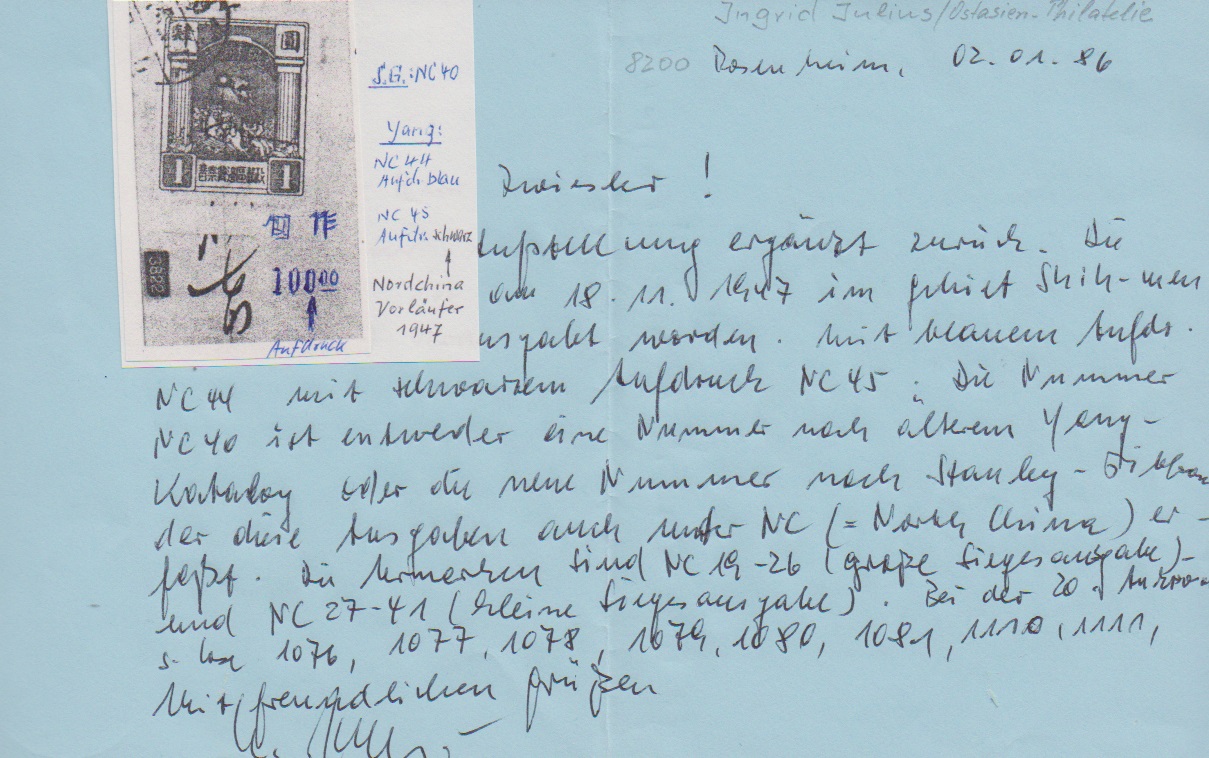 Ingrid Julius/Ostasien-Philatelie
8200 Rosenheim, 02.01.86
圓
1 1
作
100 00
Aufdruck
3822
S.G.: NC 40
Yang:
NC 44
Aufdr. blau
NC 45
Aufdr. schwarz
Nordchina
Vorläufer
1947
!
Aufstellung ergänzt zurück. Die
am 18.11.1947 im Gebiet Shih-men
usgabt worden. Mit blauem Aufdr.
NC44 mit schwarzem Aufdruck NC45. Die Nummer
NC40 ist entweder eine Nummer nach älterem Yang-
Katalog oder die neue Nummer nach Stanley-Gibbons
der diese Ausgaben auch unter NC (= North China) er-
faßt. Die sind NC 19-26 (große Siegesausgabe)-
und NC 27-41 (kleine Siegesausgabe). Bei der 20.
s. Lose 1076, 1077, 1078, 1079, 1080, 1081, 1110, 1111,
Mit freundlichen Grüßen